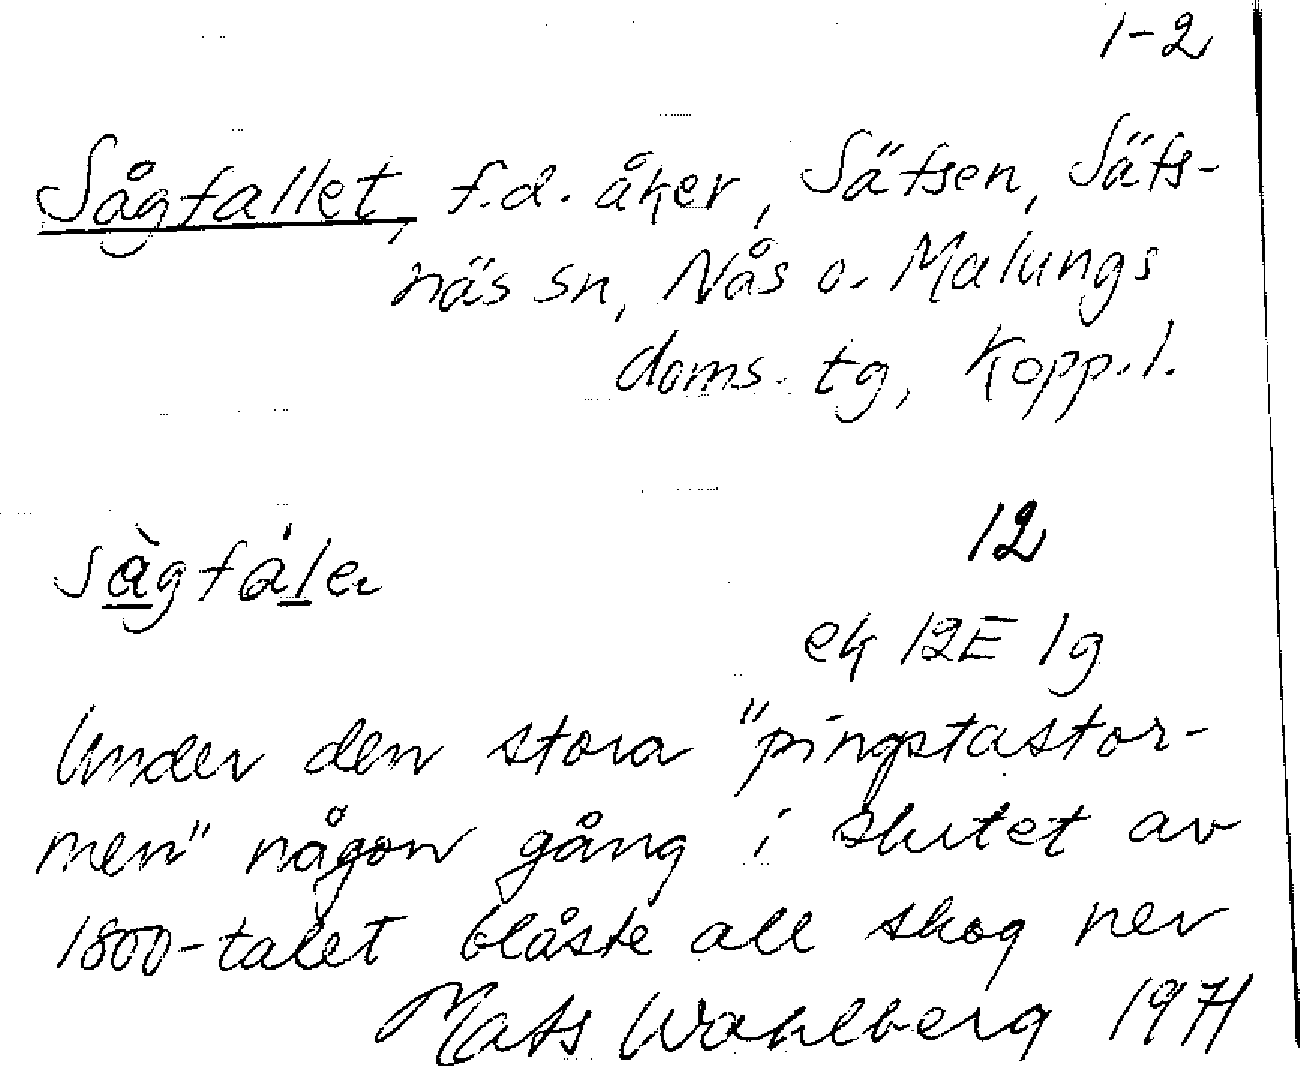 1-2
Sågfallet, f.d. åker, Säfsen, Säfs-
näs sn, Nås o. Malungs
doms. tg, Kopp.l.
12
så̀gfáler
ek 12E 1g
Under den stora "pingstastor-
men" någon gång i slutet av
1800-talet blåste all skog ner
Mats Wahlberg 1971